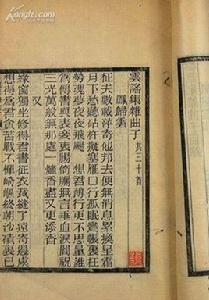 kongfz.com
雲謠集雜曲子 共三十首
鳳歸雲
征夫數載萍寄他邦去便無消息累換星霜
月下愁聽砧杵擬塞雁□行孤眠鸞帳裏枉
勞魂夢夜夜飛颺想君薄行更不思量誰
爲傳書與表妾衷腸倚牖無言垂血淚闇祝
三光萬般無那處一爐香盡又更添香
又
綠窗獨坐修得君書征衣裁縫了遠寄邊
想得爲君貪苦戰不憚崎嶇終朝沙磧裏已